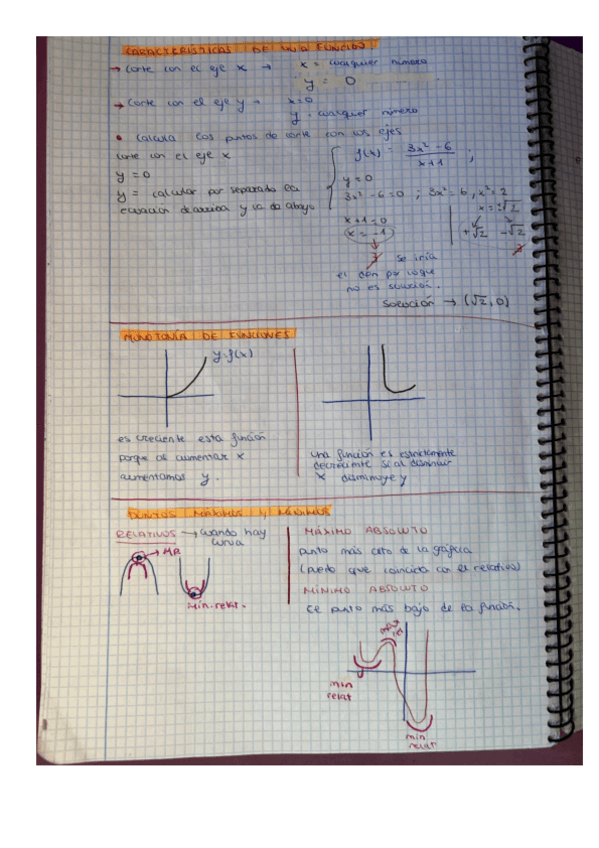 CARACTERÍSTICAS DE UNA FUNCIÓN
→ Corte con el eje x → x = cualquier número
y = 0
→ Corte con el eje y → x=0
y = cualquier número
• Calcula los puntos de corte con los ejes
corte con el eje x
f(x) = 3x² - 6 / x+1 ;
y = 0
y = calcular por separado la
ecuación de arriba y la de abajo
y = 0
3x² - 6 = 0 ; 3x² = 6 , x² = 2
x = ±√2
+√2 -√2
∄
x+1=0
x = -1
∄ se iría
el dom por lo que
no es solución.
Solución → (√2, 0)
MONOTONÍA DE FUNCIONES
y=f(x)
es creciente esta función
porque al aumentar x
aumentamos y.
una función es estrictamente
decreciente si al disminuir
x disminuye y
PUNTOS MÁXIMOS Y MÍNIMOS
RELATIVOS → cuando hay
curva
MR
min. relat.
MÁXIMO ABSOLUTO
punto más alto de la gráfica
(puede que coincida con el relativo)
MÍNIMO ABSOLUTO
el punto más bajo de la función.
min
relat
min
relat